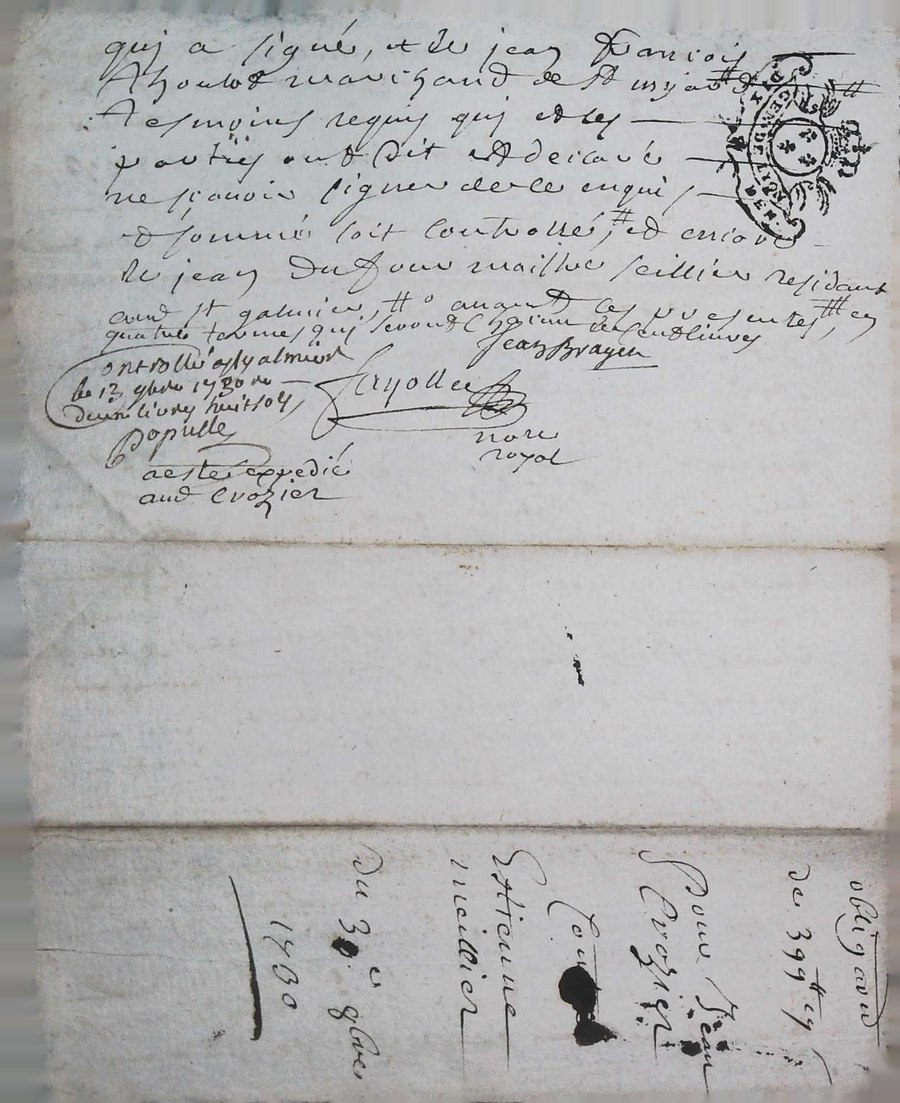 qui a signé, et de jean francois
thoulot marchand de st myard #
tesmoins requis qui et les
parties ont dit et declaré
ne scavoir signer de ce enquis
et sommé soit controllé, # et encore
de jean dufour maistre sellier residant
aud st galmier, # avant les presentes, # en
quatre termes qui seront chacun de cent livres
Jean Brayer
controllé a st galmier
le 13 9bre 1730 re
deux livres huit sols
Fayolle
Popule
nore
royal
a este expedié
aud Crozier
GEN DE LYON
HUIT DEN
obligaõn
de 399 tt
Pour Jean
Crozier
Con
Estienne
meillier
du 3e 9bre
1730